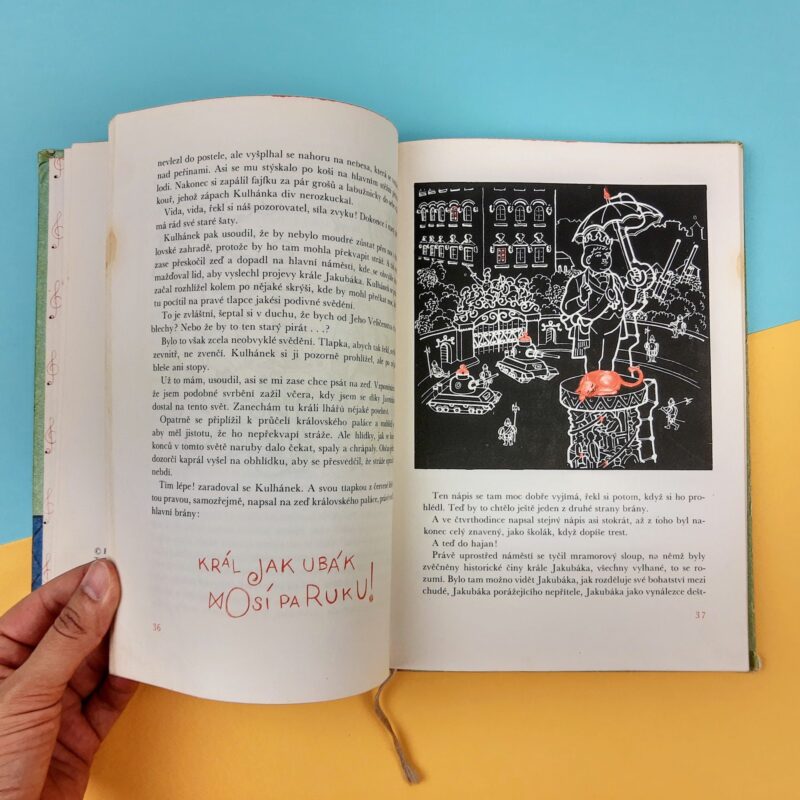 nevlezl do postele, ale vyšplhal se nahoru na nebesa, která se
nad peřinami. Asi se mu stýskalo po koši na hlavním
lodi. Nakonec si zapálil fajfku za pár grošů a labužnicky do
kouř, jehož zápach Kulhánka div nerozkuckal.
Vida, vida, řekl si náš pozorovatel, síla zvyku! Dokonce i
má rád své staré šaty.
Kulhánek pak usoudil, že by nebylo moudré zůstat přes noc
lovské zahradě, protože by ho tam mohla překvapit stráž. A
ze přeskočil zeď a dopadl na hlavní náměstí, kde se
mažďoval lid, aby vyslechl projevy krále Jakubáka. Kulhánek
začal rozhlížel kolem po nějaké skrýši, kde by mohl přečkat
tu pocítil na pravé tlapce jakési podivné svědění.
To je zvláštní, šeptal si v duchu, že bych od Jeho Veličenstva
blechy? Nebo že by to ten starý pirát . . .?
Bylo to však zcela neobvyklé svědění. Tlapka, abych tak řekl,
zevnitř, ne zvenčí. Kulhánek si ji pozorně prohlížel, ale po
bleše ani stopy.
Už to mám, usoudil, asi se mi zase chce psát na zeď.
že jsem podobné svrbění zažil včera, kdy jsem se díky
dostal na tento svět. Zanechám tu králi lhářů nějaké
Opatrně se připlížil k průčelí královského paláce a
aby měl jistotu, že ho nepřekvapí stráže. Ale hlídky, jak se
konců v tomto světě naruby dalo čekat, spaly a chrápaly.
dozorčí kaprál vyšel na obhlídku, aby se přesvědčil, že stráže
nehdí.
Tím lépe! zaradoval se Kulhánek. A svou tlapkou z červené
tou pravou, samozřejmě, napsal na zeď královského paláce,
hlavní brány:
KRÁL JAK UBÁK
NOSÍ PA RUKU!
36
Ten nápis se tam moc dobře vyjímá, řekl si potom, když si ho
prohlédl. Teď by to chtělo ještě jeden z druhé strany brány.
A ve čtvrthodince napsal stejný nápis asi stokrát, až z toho byl na-
konec celý znavený, jako školák, když dopíše trest.
A teď do hajan!
Právě uprostřed náměstí se tyčil mramorový sloup, na němž byly
zvěčněny historické činy krále Jakubáka, všechny vylhané, to se ro-
zumí. Bylo tam možno vidět Jakubáka, jak rozděluje své bohatství mezi
chudé, Jakubáka porážejícího nepřítele, Jakubáka jako vynálezce dešt-
37